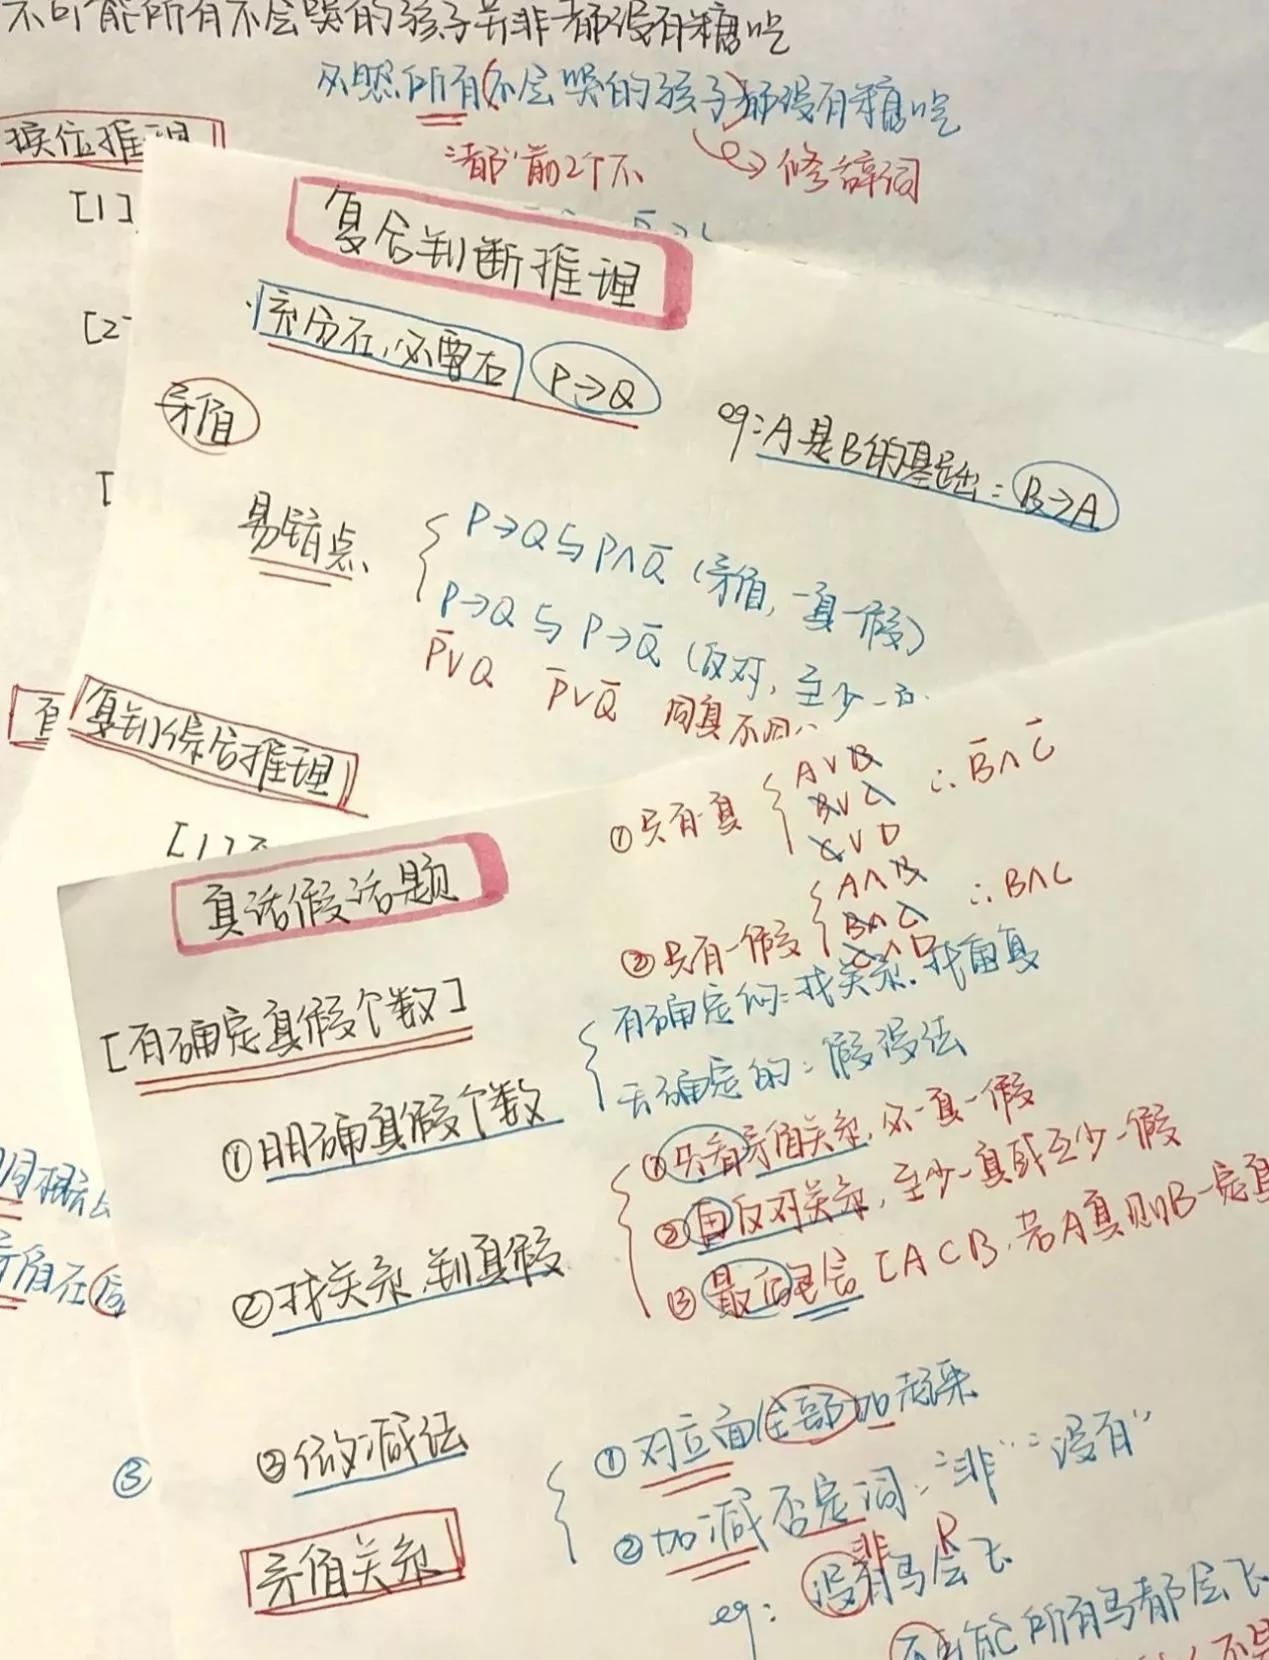 不可能所有不会哭的孩子并非都没有糖吃
必然所有(不会哭的孩子)都没有糖吃
"都"前2个不 → 修辞词
换位推理
[1]
[2
[
复合判断推理
充分左,必要右 P→Q
矛盾
eg:A是B的基础:B→A
易错点
P→Q与P∧Q̅(矛盾,一真一假)
P→Q与P→Q̅(反对,至少一
P̅∨Q P̅∨Q̅ 同真不同
复判综合推理
[1]
真话假话题
①只有一真
A∨B
B∨C ∴B̅∧C̅
C∨D
②只有一假
A∧B
B∧C ∴B∧C
C∧D
[有确定真假个数]
有确定的:找关系.找重复
无确定的:假设法
①明确真假个数
②找关系,判真假
①先看矛盾关系,必一真一假
②再反对关系,至少一真或至少一假
③最后包含[A⊂B,若A真则B一定真
③做减法
矛盾在后
③
矛盾关系
①对立面全部加起来
②加减否定词:"非""没有"
eg:没有马会飞
非
不可能所有马都会飞